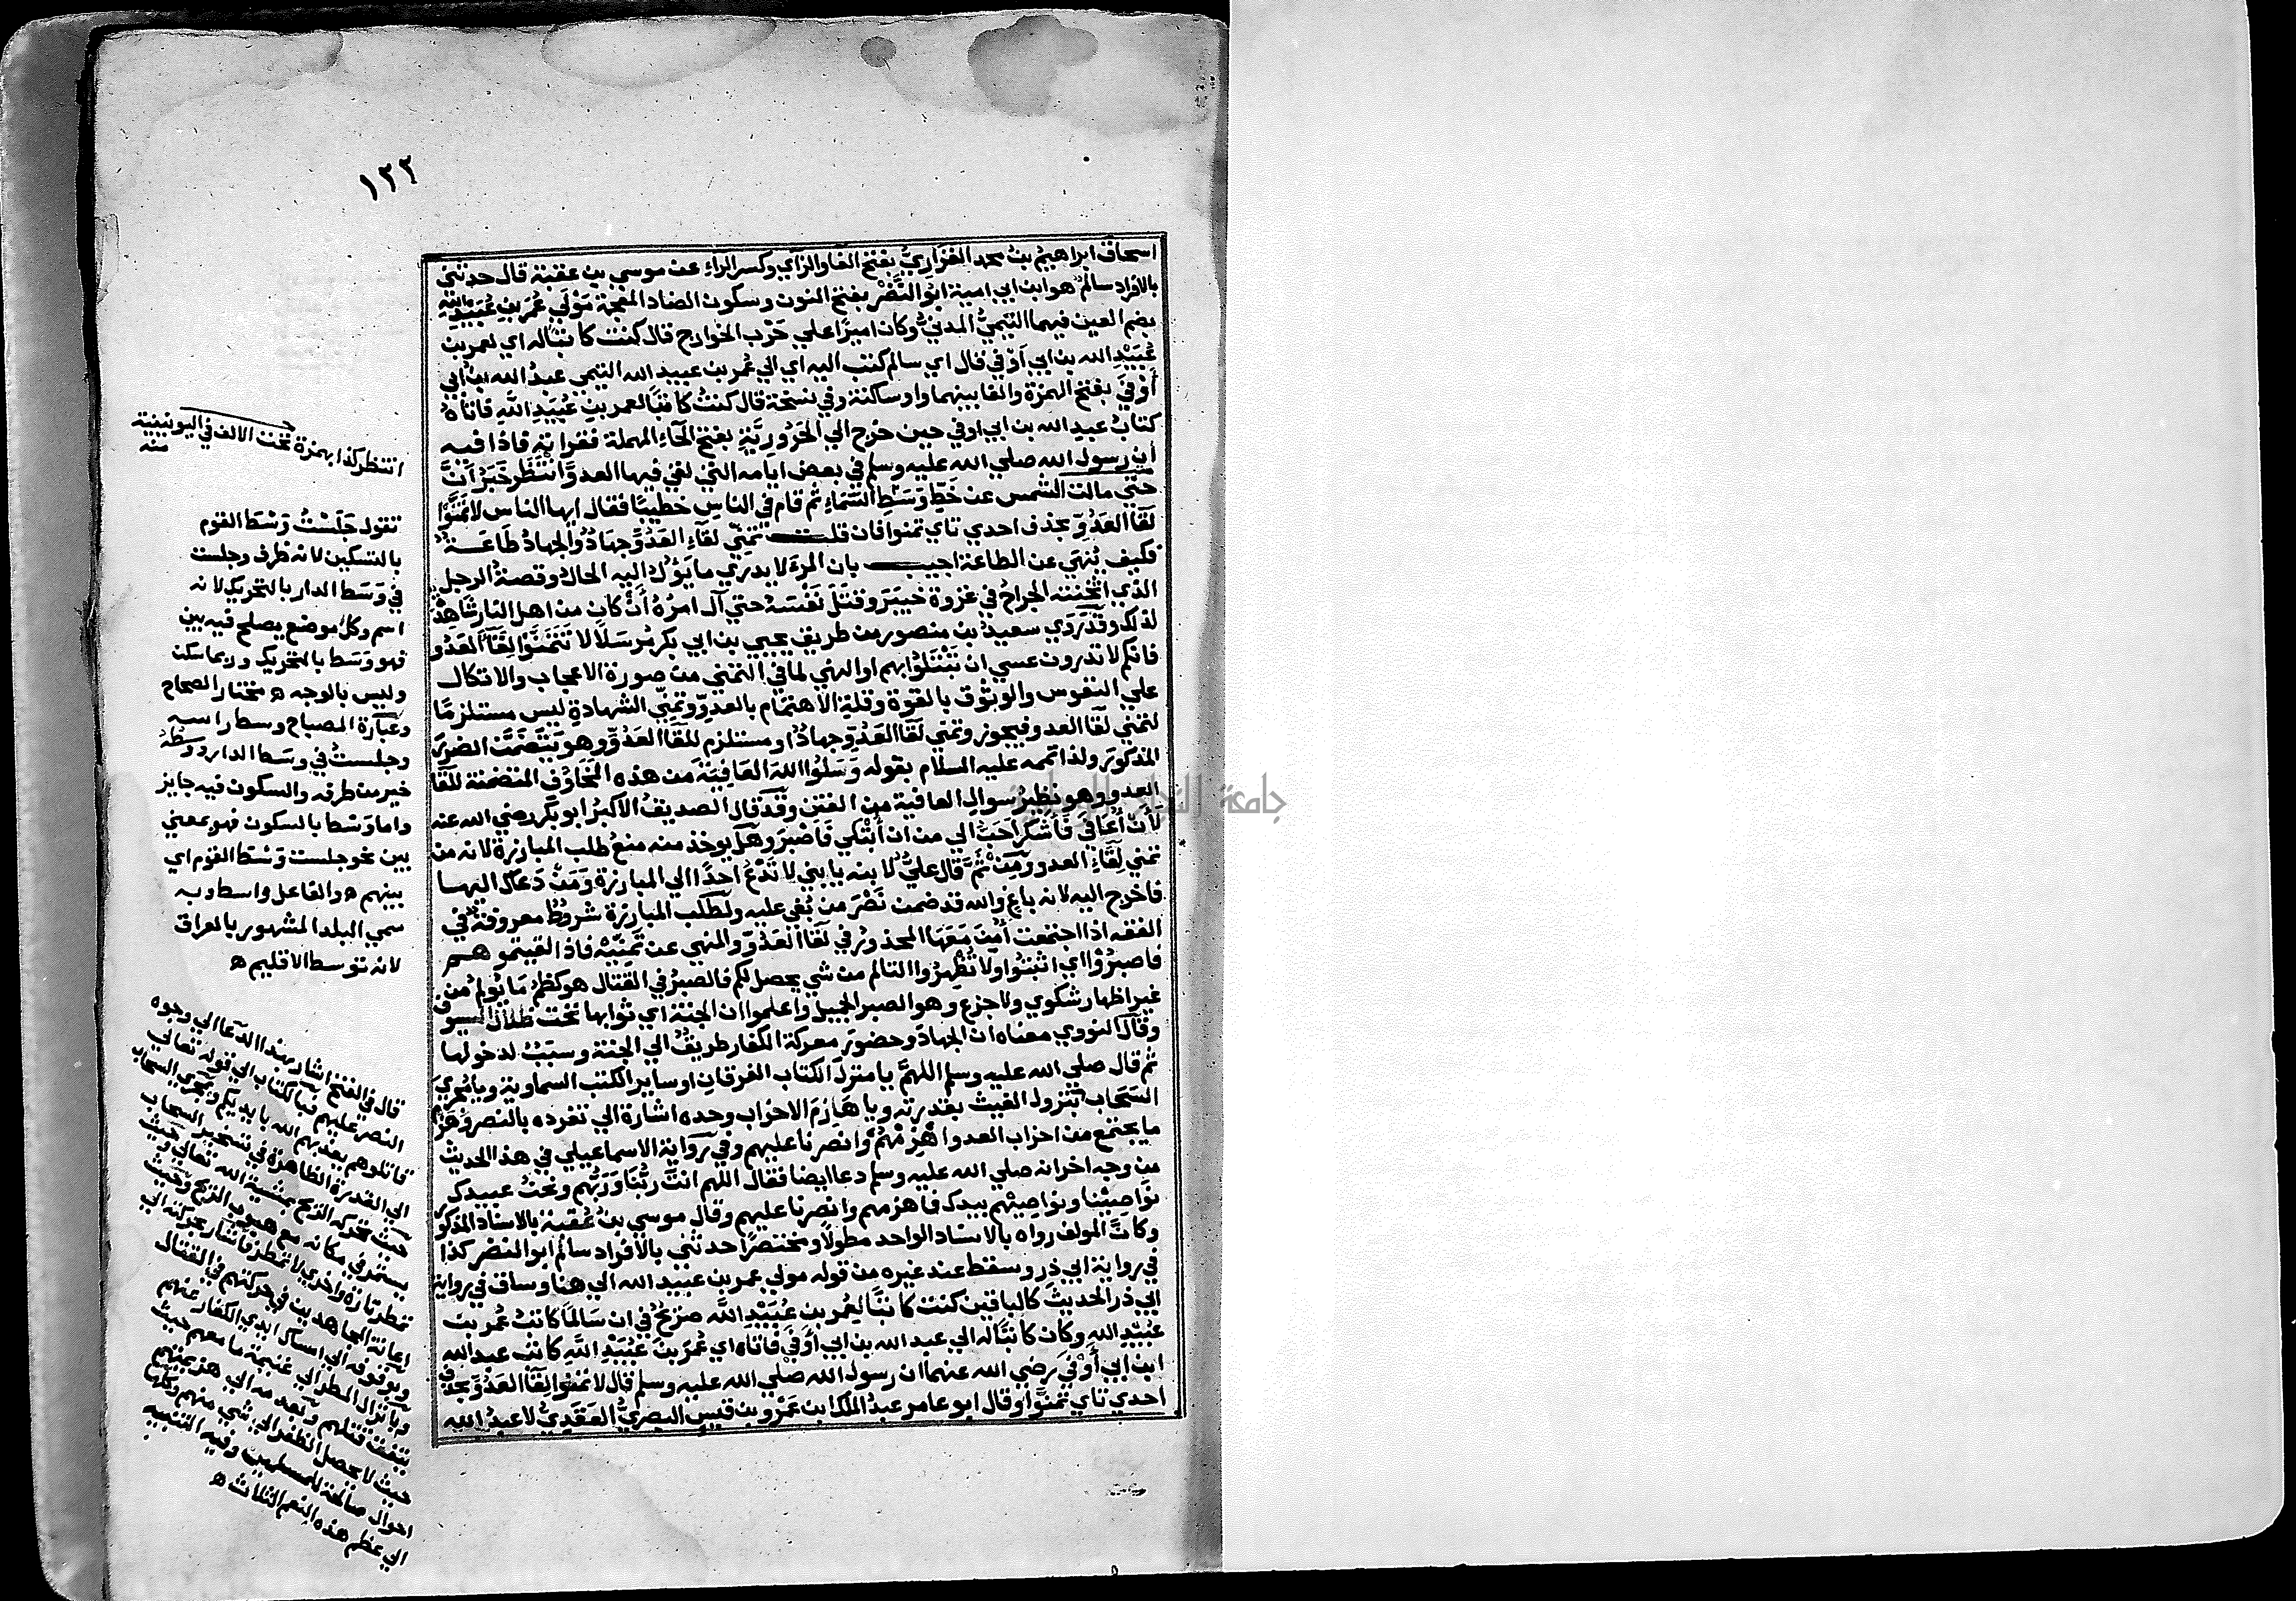 ١٢٢
اسحاق ابراهيمُ بنُ محمد الفَزَارِيُّ بفتح الفا والزاي وكسر الراء عن موسي بن عقبة قال حدثني
بالافراد سالمٌ هو ابن ابي امية ابو النَّضْرِ بفتح النون وسكون الضاد المعجمة مَوْلَي عُمَرَ بنِ عُبَيْدِ الله
بضم العين فيهما التَّيْمِيُّ المدنيُّ وكان اميرًا علي حَرْب الخوارج قال كنت كاتبًا له اي لعمر بن
عُبَيْدِ الله بن ابي أَوْفي قال اي سالم كتب اليه اي الي عُمر بن عبيد الله التيمي عبدُ الله بنُ ابي
أَوْفَي بفتح الهمزة والفا بينهما واو ساكنة وفي نسخة قال كنتُ كاتبًا لعمر بنِ عُبَيْدِ اللَّهِ فاتاهُ
كتابُ عبدِ الله بن ابي اوفي حين خرج الي الحَرُورِيَّةِ بفتح الحاء المهملة فقراته فاذا فيه
أن رسول الله صلي الله عليه وسلم في بعض ايامه التي لقي فيها العدوَّ انْتَظَرَ
حتي مالت الشمس عن خَطِّ وَسَطِ السَّمَاءِ ثم قام في الناسِ خطيبًا فقال ايها الناس لا تمَنَّوْا
لقآ العَدُوِّ بحذف احدي تاي تتمنوا فان قلت تمنّي لقآءِ العَدُوِّ جهادٌ والجهادُ طَاعَةٌ
فكيف يُنهَي عن الطاعة اجيب بان المرءَ لا يدري ما يَؤُلُ اليه الحالُ وقصةُ الرجل
الذي اثخنته الجراحُ في غزوة خيبَرَ وقتل نَفْسَهُ حتي آل امرُهُ أَنْ كان من اهل النار شاهدٌ
لذلك وقد رَوَي سعيدُ بن منصور من طريق يحيي بن ابي بكر مُرسَلًا لا تتَمَنَّوْا لِقَآ العَدُو
فانكم لا تدرون عسي ان تُبْتَلَوْا بهم او النهي لما في التمني من صورة الاعجاب والاتكال
علي النفوس والوثوق بالقوة وقلةِ الاهتمام بالعدوِّ وتمنِّي الشهادةِ ليس مستلزمًا
لتمني لقآ العدو فيجوز وتمَنّي لقآ العَدُوِّ جهادٌ او مستلزم للقآ العَدُوِّ وهو يَتَضَمَّنُ الضررَ
المذكورَ ولذا تممه عليه السلام بقوله وَسَلُوا اللهَ العَافِيَةَ من هذه المَخَاوِفِ المتضمنة للقآ
العدو وهو نظيرُ سوال العافية من الفتن وقَد قال الصديقُ الاكبرُ ابو بكر رضي الله عنه
لَأنْ أُعَافَي فَأشكرَ احبُّ الي من ان أُبتلي فَاَصْبرَ وهل يوخذ منه منعُ طلب المبارزة لانه من
تمني لِقَآءِ العدو ومِنْ ثَمَّ قال عليٌّ لابنه يا بني لا تَدْعُ احدًا الي المبارزة وَمَنْ دَعَاكَ اليها
فاخرج اليه لانه باغٍ والله قد ضمن نَصْرَ من بُغي عليه ولطلب المبارزة شروطٌ معروفةٌ في
الفقه اذا اجتمعت أُمِنَ مَعَها المحذورُ في لقآ العَدُوِّ والنهي عن تَمَنِّيْهِ فاذا لقيتموهم
فاصبِرُوْا اي اثبتُوا ولا تُظْهِرُوا التالم من شي يحصل لكم فالصبرُ في القتال هو كظمُ مَا يُولم من
غير اظهار شكوي ولا جزع وهو الصبر الجميل واعلموا ان الجنة اي ثوابها تحت ظلال السيوف
وقال النووي معناه ان الجهادَ وحضورَ معركة الكفار طريقٌ الي الجنة وسببٌ لدخولها
ثم قال صلي الله عليه وسلم اللهمَّ يا منزلَ الكتاب الفرقانِ او ساير الكتب السماوية ويا مُجريَ
السَّحَاب بنزول الغيث بقدرته ويا هَازِمَ الاحزاب وحده اشارة الي تفرده بالنصر وهَزْمِ
ما يجتمع من احزاب العدو اهْزِمْهُمْ وانصرنا عليهم وفي رواية الاسماعيلي في هذا الحديث
من وجه اخر انه صلي الله عليه وسلم دعا ايضا فقال اللهم انتَ ربُّنا ورَبُّهم ونحنُ عبيدك
نَواصِيْنا ونواصِيْهم بيدك فاهزمهم وانصرنا عليهم وقال موسي بنُ عُقبةَ بالاسناد المذكور
وكانَّ المولف رواه بالاسناد الواحد مطولًا ومختصرًا حدثني بالافراد سالم ابو النضر كذا
في رواية ابي ذر وسقط عند غيره من قوله مولي عمر بن عبيد الله الي هنا وساق في رواية
ابي ذر الحديثَ كالباقين كنت كاتبًا لِعُمَر بن عُبَيْدِ اللَّه صريحٌ في ان سَالِمًا كاتبُ عُمَر بن
عُبَيْدِ اللهِ وكان كاتبًا له الي عبد الله بن ابي أَوْفَي فاتاه اي عُمَرَ بنَ عُبَيْدِ اللَّهِ كتاب عبد الله
ابن ابي أَوْفَي رضي الله عنهما ان رسول الله صلي الله عليه وسلم قال لا تمَنَّوْا لِقَآ العَدُوِّ بحذف
احدي تاي تتمنَّوا وقال ابو عامر عبدُ الملك ابن عَمْرو بن قيسٍ البصريُّ العَقَدِيُّ لا عبدُ الله
انتظر كذا بهمزة تحت الالف في اليونينية
منه
تقول جَلَسْتُ وَسْطَ القوم
بالتسكين لانه ظرف وجلست
في وَسَط الدار بالتحريك لانه
اسم وكلُّ موضع يصلح فيه بين
فهو وَسْط بالتحريك وربما سكن
وليس بالوجه ه مختار الصحاح
وعبارة المصباح وسط راسه
وجلستُ في وسَط الدار ووسَطُهُ
خير من طرفه والسكون فيه جايز
واما وَسْط بالسكون فهو بمعني
بين نحو جلست وَسْطَ القوم اي
بينهم ه والفاعل واسط وبه
سمي البلد المشهور بالعراق
لانه توسط الاقليم ه
قال في الفتح اشار بهذا الدعا الي وجوه
النصر عليهم فبالكتاب الي قوله تعالي
قاتلوهم يعذبهم الله بايديكم وبمجري السحاب
الي القدرة الظاهرة في تسخير السحاب
حيث تحركه الريح بمشية الله تعالي وحيث
يستمر في مكانه مع هبوب الريح وحيث
تمطر تارة واخري لا تمطر فاشار بحركته الي
اعانة المجاهدين في حركتهم في القتال
وبوقوفه الي امساك ايدي الكفار عنهم
وبانزال المطر الي غنيمة ما معهم حيث
يتفق قتلهم وبعدمه الي هزيمتهم
حيث لا يحصل الظفر الي شي منهم وكلها
احوال صالحة للمسلمين وفيه التنبيه
الي عظم هذه النعم الثلاث ه
جامعة